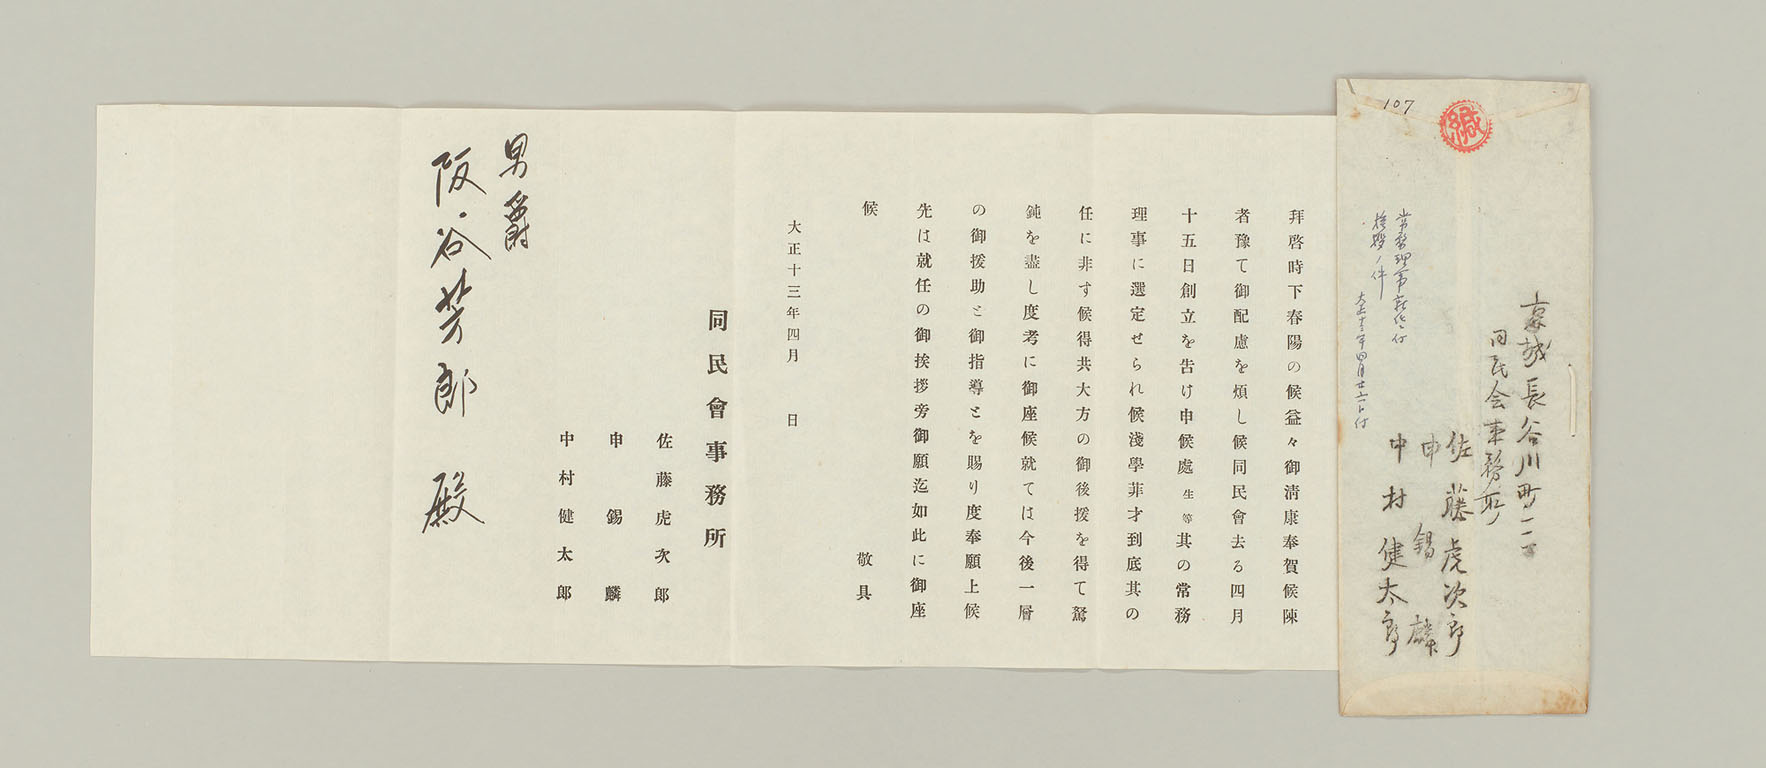 107
緘
京城長谷川町一一二
同民会事務所
佐藤虎次郎
申錫麟
中村健太郎
常務理事就任ニ付
挨拶ノ件
拜啓時下春陽の候益々御淸康奉賀候陳
者豫て御配慮を煩し候同民會去る四月
十五日創立を告け申候處生等其の常務
理事に選定せられ候淺學菲才到底其の
任に非す候得共大方の御後援を得て駑
鈍を盡し度考に御座候就ては今後一層
の御援助と御指導とを賜り度奉願上候
先は就任の御挨拶旁御願迄如此に御座
候 敬具
大正十三年四月 日
同民會事務所
佐藤虎次郎
申錫麟
中村健太郎
男爵
阪谷芳郎 殿